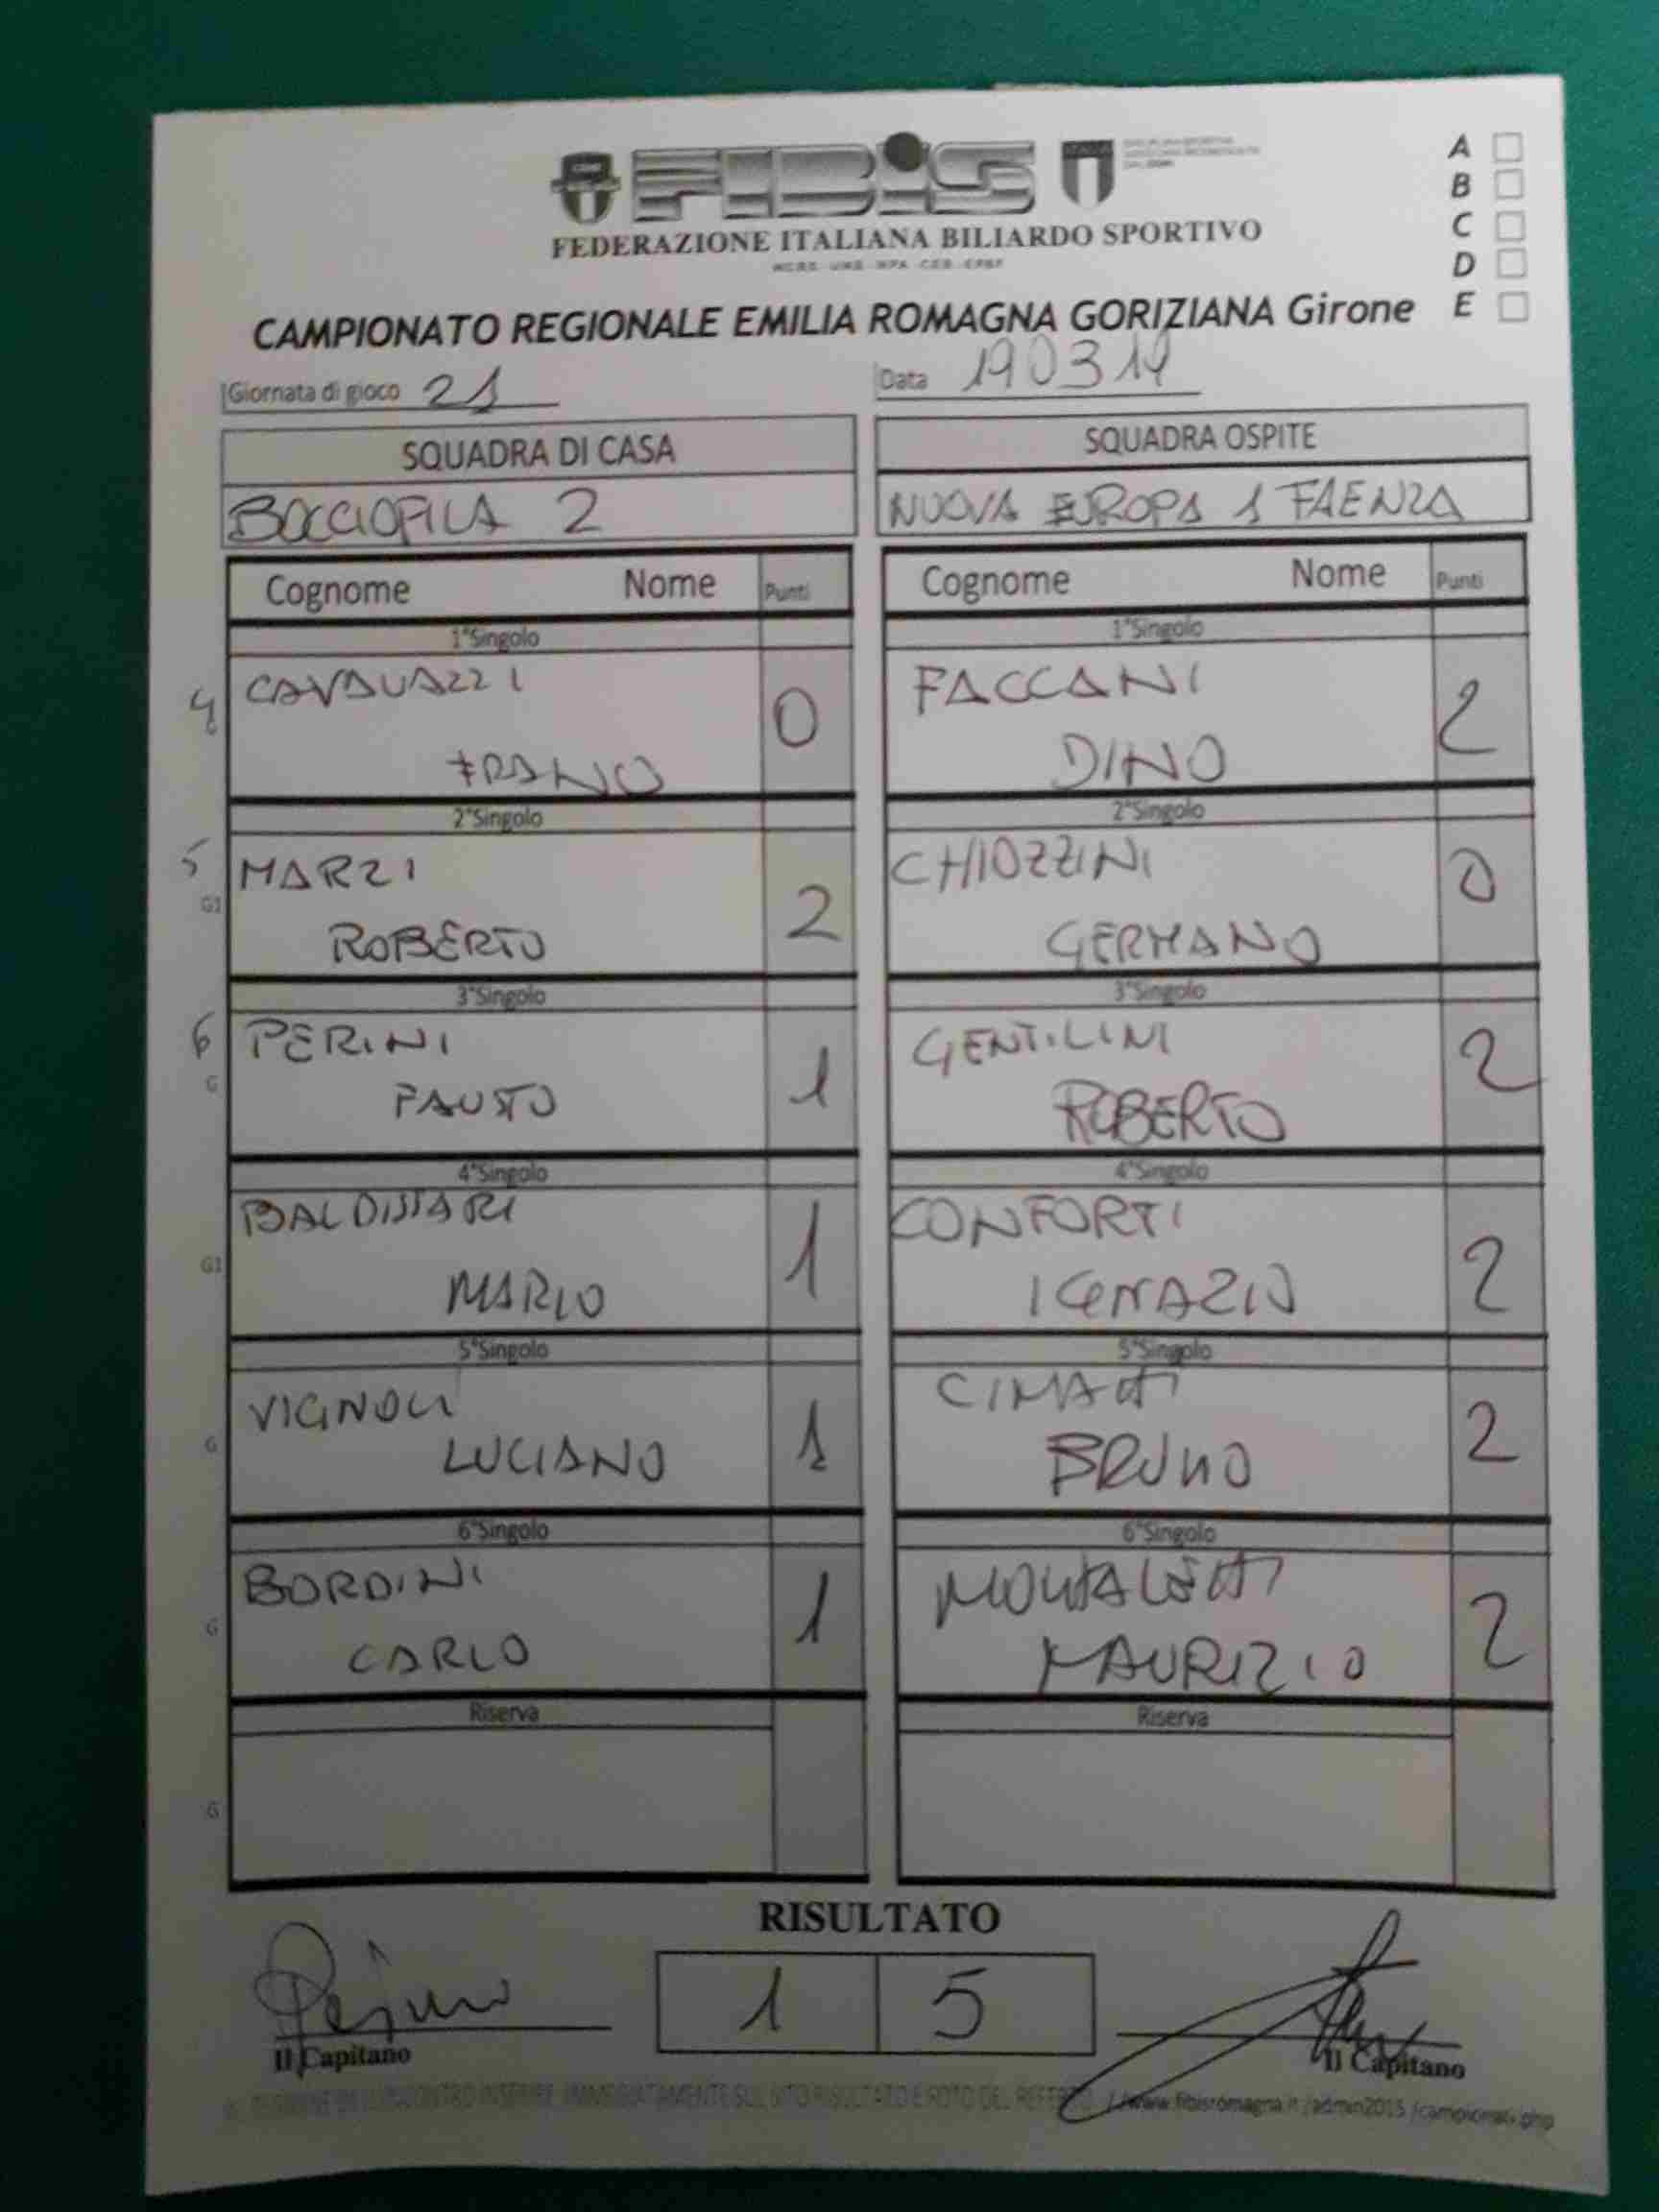 FIBIS
ITALIA
FEDERAZIONE ITALIANA BILIARDO SPORTIVO
A
B
C
D
E
CAMPIONATO REGIONALE EMILIA ROMAGNA GORIZIANA Girone
Giornata di gioco 21
Data 190319
SQUADRA DI CASA
SQUADRA OSPITE
BOCCIOFILA 2
NUOVA EUROPA 1 FAENZA
Cognome Nome Punti
Cognome Nome Punti
1°Singolo
1°Singolo
4 0
FACCANI 2
DINO
2°Singolo
2°Singolo
5 MARZI 2
G1 ROBERTO
CHIOZZINI 0
GERMANO
3°Singolo
3°Singolo
6 PERINI 1
G FAUSTO
GENTILINI 2
ROBERTO
4°Singolo
4°Singolo
BALDISSARI 1
G1 MARIO
CONFORTI 2
IGNAZIO
5°Singolo
5°Singolo
VIGNOLI 1
G LUCIANO
CIMATTI 2
BRUNO
6°Singolo
6°Singolo
BORDINI 1
G CARLO
2
MAURIZIO
Riserva
Riserva
G
RISULTATO
1 5
Il Capitano
Il Capitano
INSERIRE IMMEDIATAMENTE SUL SITO RISULTATO E FOTO DEL REFERTO